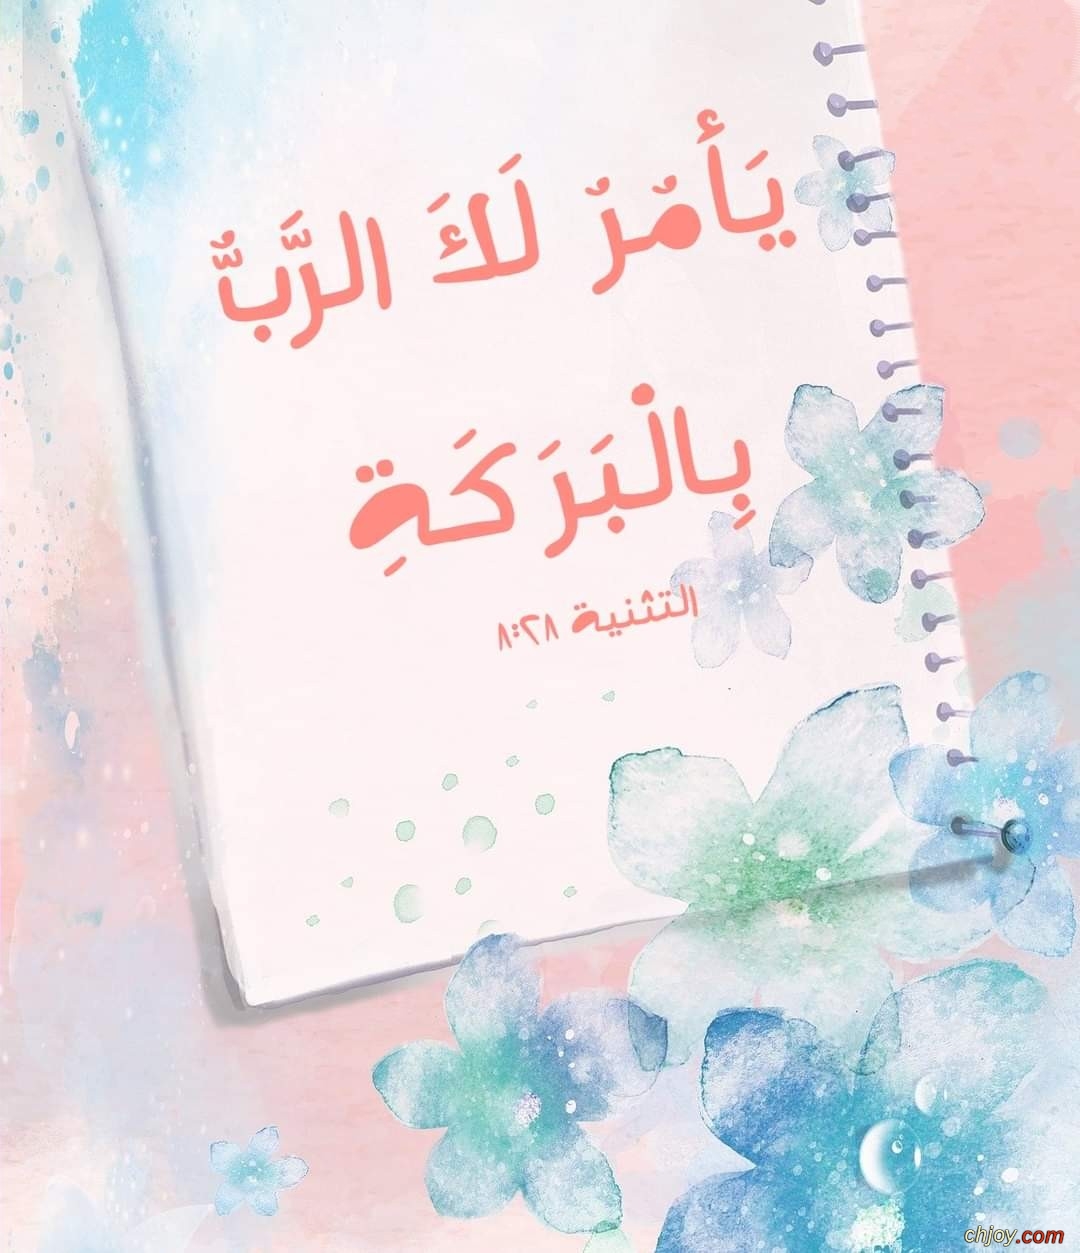 يَأمُرُ لَكَ الرَّبُّ
بِالْبَرَكَةِ
التثنية ٨:٢٨
chjoy.com